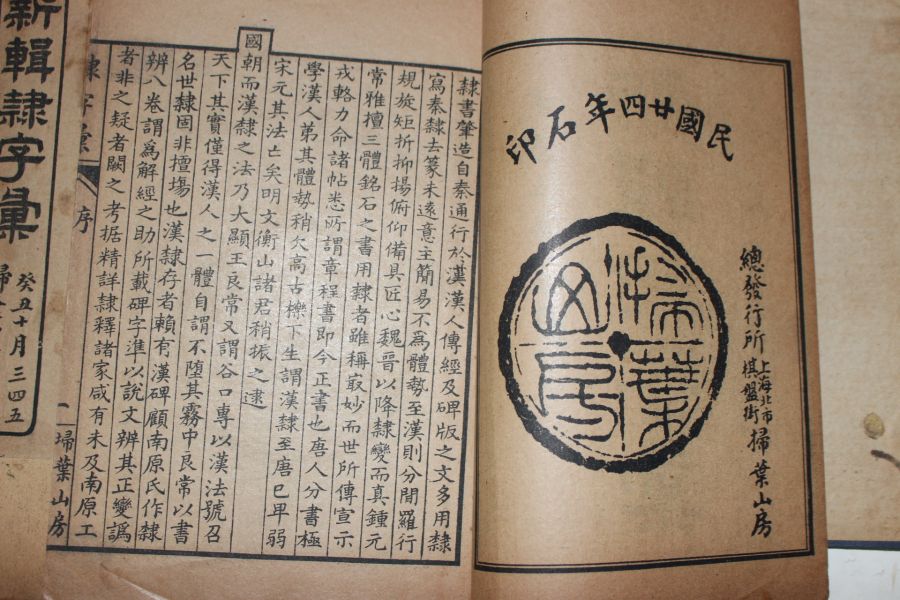 民國廿四年石印
掃葉山房
總發行所上海北市棋盤街掃葉山房
隸書肇造自秦通行於漢漢人傳經及碑版之文多用隸
寫秦隸去篆未遠意主簡易不為體勢至漢則分間羅行
規旋矩折抑揚俯仰備具匠心魏晉以降隸變而真鍾元
常雅擅三體銘石之書用隸者雖稱㝡妙而世所傳宣示
戎輅力命諸帖悉所謂章程書即今正書也唐人分書極
學漢人弟其體勢稍欠高古櫟下生謂漢隸至唐已卑弱
宋元其法亡矣明文衡山諸君稍振之逮
國朝而漢隸之法乃大顯王良常又謂谷口專以漢法號召
天下其實僅得漢人之一體自謂不堕其霧中良常以書
名世隸固非擅塲也漢隸存者賴有漢碑顧南原氏作隸
辨八卷謂為解經之助所載碑字準以說文辨其正變譌
者非之疑者闕之考据精詳隸釋諸家咸有未及南原工
隸字彙
序
一
埽葉山房
新輯隸字彙
癸丑十月三四五